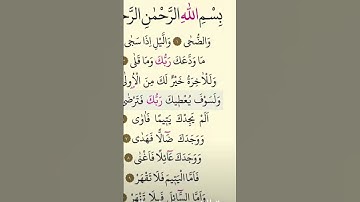 بِسْمِ اللهِ الرَّحْمٰنِ
وَالضُّحٰى ۙ١ وَالَّيْلِ اِذَا سَجٰى
مَا وَدَّعَكَ رَبُّكَ وَمَا قَلٰى
وَلَلْاٰخِرَةُ خَيْرٌ لَّكَ مِنَ الْاُوْلٰى
وَلَسَوْفَ يُعْطِيْكَ رَبُّكَ فَتَرْضٰى
اَلَمْ يَجِدْكَ يَتِيْمًا فَاٰوٰى
وَوَجَدَكَ ضَآلًّا فَهَدٰى
وَوَجَدَكَ عَآئِلًا فَاَغْنٰى
فَاَمَّا الْيَتِيْمَ فَلَا تَقْهَرْ
وَاَمَّا السَّآئِلَ فَلَا تَنْهَرْ